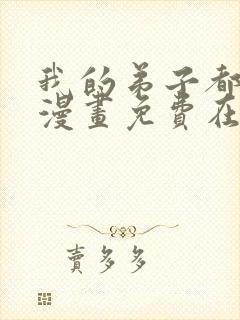 我的弟子都
漫畫免費在
賣多多